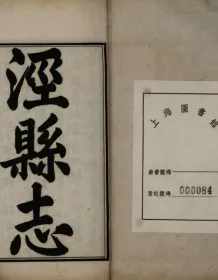 涇縣志
上海圖書館
索書號碼
登記號碼 000084